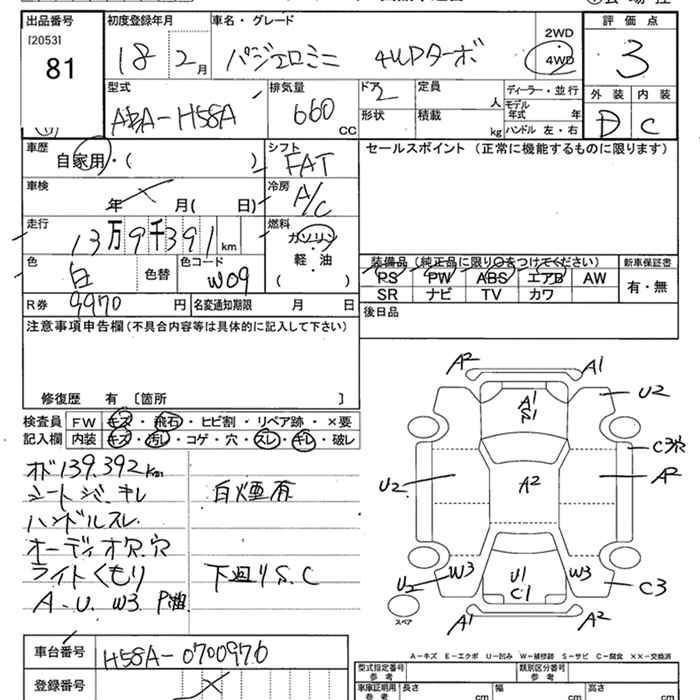 出品番号
[2053]
81
初度登録年月
18 2月
車名・グレード
パジェロミニ 4WDターボ
2WD
4WD
評価点
3
外装 内装
D C
型式
ABA-H58A
排気量
660 CC
ドア 2
形状
定員 人
積載 kg
ディーラー・並行
モデル年式 年
ハンドル 左・右
車歴
自家用・( )
シフト
FAT
セールスポイント (正常に機能するものに限ります)
車検
年 月( 日)
冷房
A/C
走行
13万9千391km
燃料
ガソリン
軽・油
( )
色
白
色替
色コード
W09
装備品 (純正品に限り○をつけてください)
PS PW ABS エアB AW
SR ナビ TV カワ
新車保証書
有・無
R券 9970円
名変通知期限 月 日
後日品
注意事項申告欄(不具合内容等は具体的に記入して下さい)
修復歴 有 〔箇所 〕
検査員記入欄
FW キズ・飛石・ヒビ割・リペア跡・×要
内装 キズ・汚れ・コゲ・穴・スレ・キレ・破レ
オド139.392Km
シートジミ.キレ
白煙有
ハンドルスレ.
オーディオ欠.穴
ライトくもり
下廻りS.C
A.U.W3.P溜
A2 A1
A1
S1
U2
C3穴
U2
A2
A2
U2
W3
U1
C1
W3
C3
スペア
A1
A2
A-キズ E-エクボ U-凹み W-補修跡 S-サビ C-腐食 XX-交換済
車台番号
H58A-0700970
登録番号
型式指定番号
参考
類別区分番号
参考
車庫証明用
参考
長さ cm
幅 cm
高さ cm